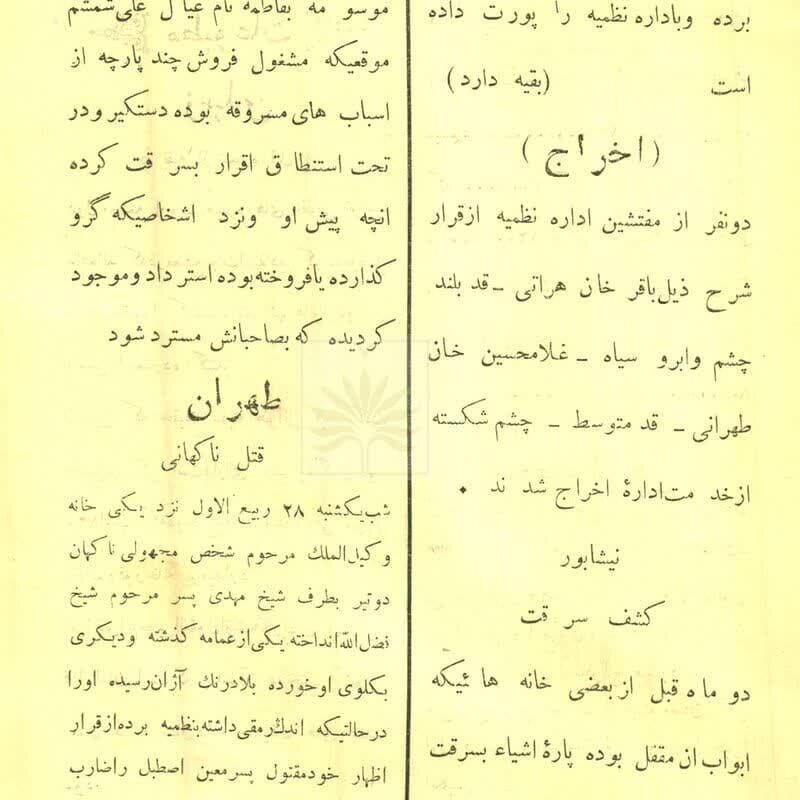 برده وباداره نظمیه را پورت داده
است (بقیه دارد)
(اخراج)
دونفر از مفتشین اداره نظمیه ازقرار
شرح ذیل باقر خان هراتی – قد بلند
چشم وابرو سیاه – غلامحسین خان
طهرانی – قد متوسط – چشم شکسته
ازخد مت ادارهٔ اخراج شد ند .
نیشابور
کشف سر قت
دو ماه قبل از بعضی خانه ها ئیکه
ابواب ان مقفل بوده پارهٔ اشیاء بسرقت
موسو مه بفاطمه نام عیال علی شمشم
موقعیکه مشغول فروش چند پارچه از
اسباب های مسروقه بوده دستکیر ودر
تحت استنطا ق اقرار بسر قت کرده
انچه پیش او ونزد اشخاصیکه گرو
کذارده یافروخته بوده استر داد وموجود
کردیده که بصاحبانش مسترد شود
طهران
قتل ناکهانی
شب یکشنبه ۲۸ ربیع الاول نزد یکی خانه
وکیل الملك مرحوم شخص مجهولی ناکهان
دوتیر بطرف شیخ مهدی پسر مرحوم شیخ
فضل الله انداخته یکی از عمامه کذشته ودیکری
بکلوی اوخورده بلادرنك آژان رسیده اورا
درحالتیکه اندك رمقی داشته بنظمیه برده ازقرار
اظهار خود مقتول پسر معین اصطبل راضارب